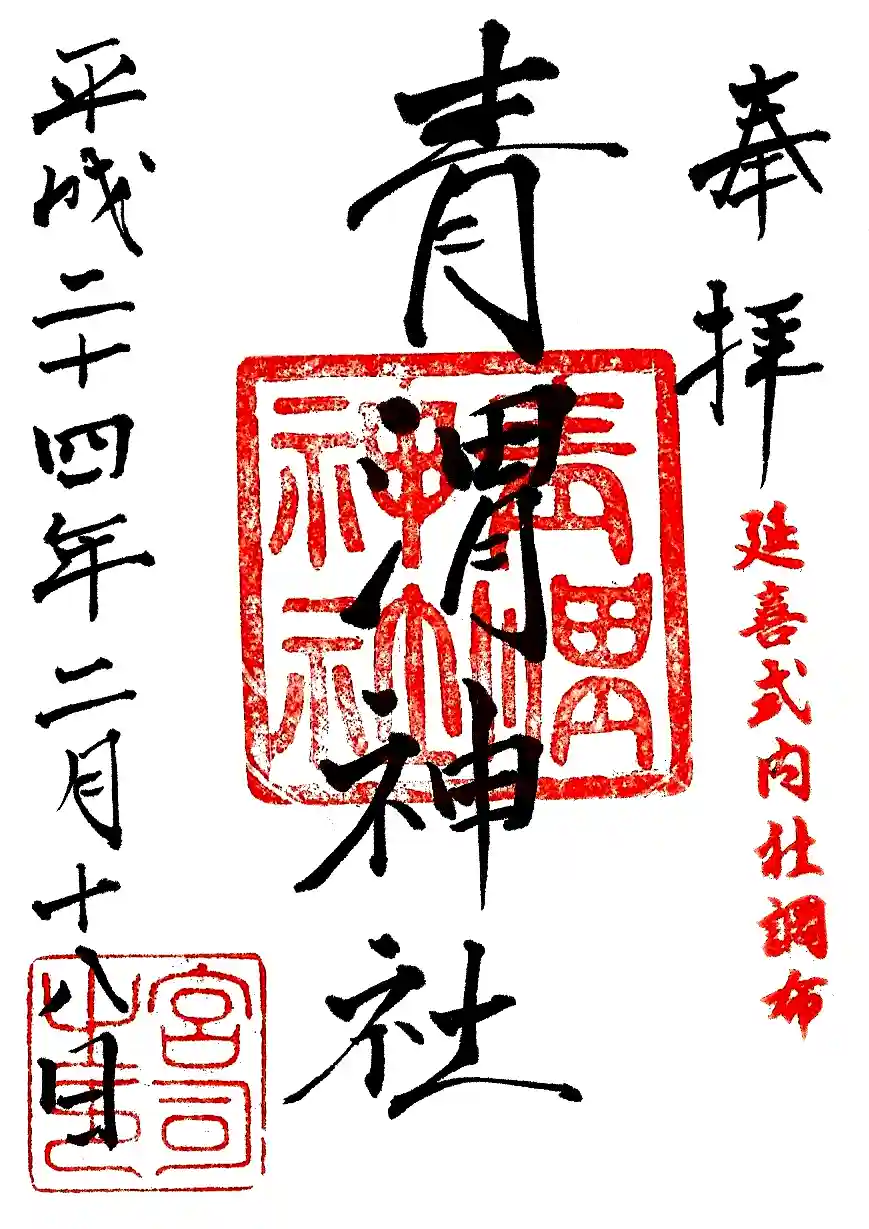 奉拝
延喜式内社調布
青渭神社
青渭神社
平成二十四年二月十八日
宮司